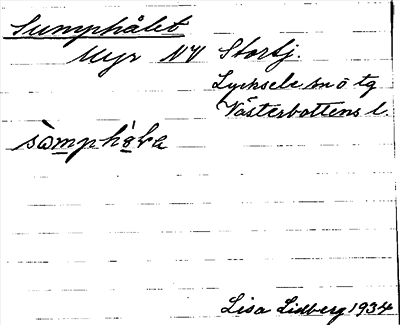 Sumphålet
Myr NV Stortj.
Lycksele sn o tg
Västerbottens l.
sàmphò̱la
Lisa Lidberg 1934